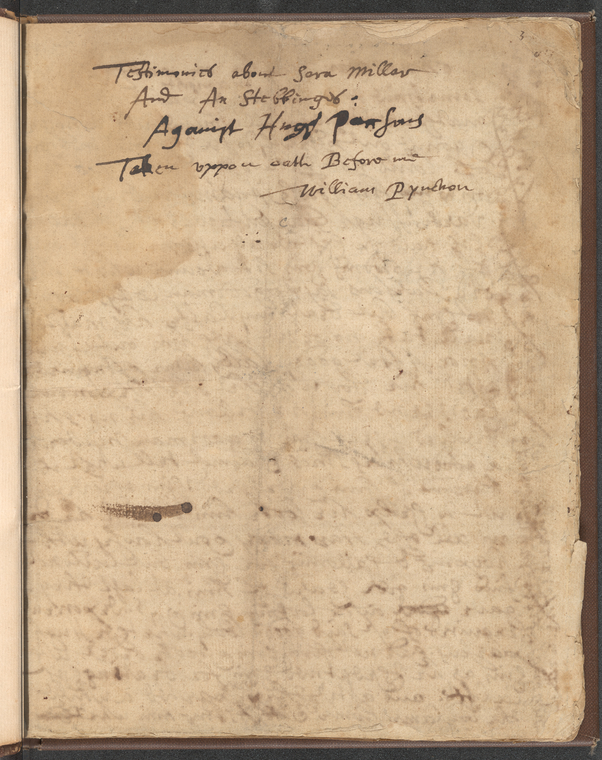 3
Testimonies about Sara Miller
And An Stebbinges:
Against Hugh Parsons
Taken uppon oath Before me
William Pynchon